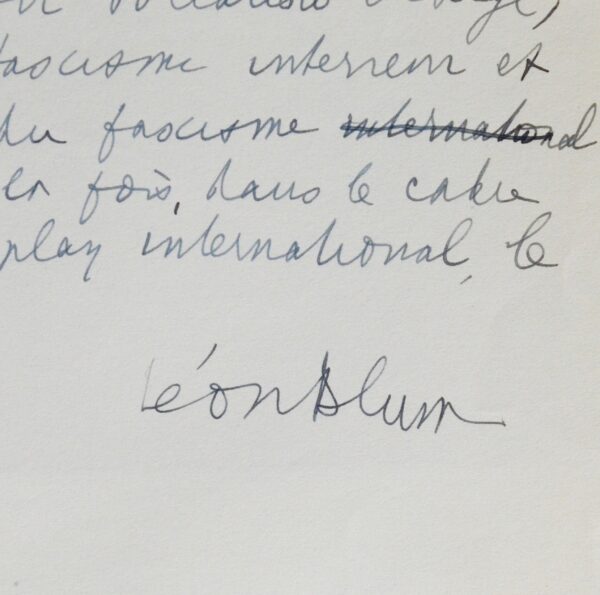 fascisme interieur et
du fascisme international
la fois, dans le cadre
plan international, le
Léon Blum